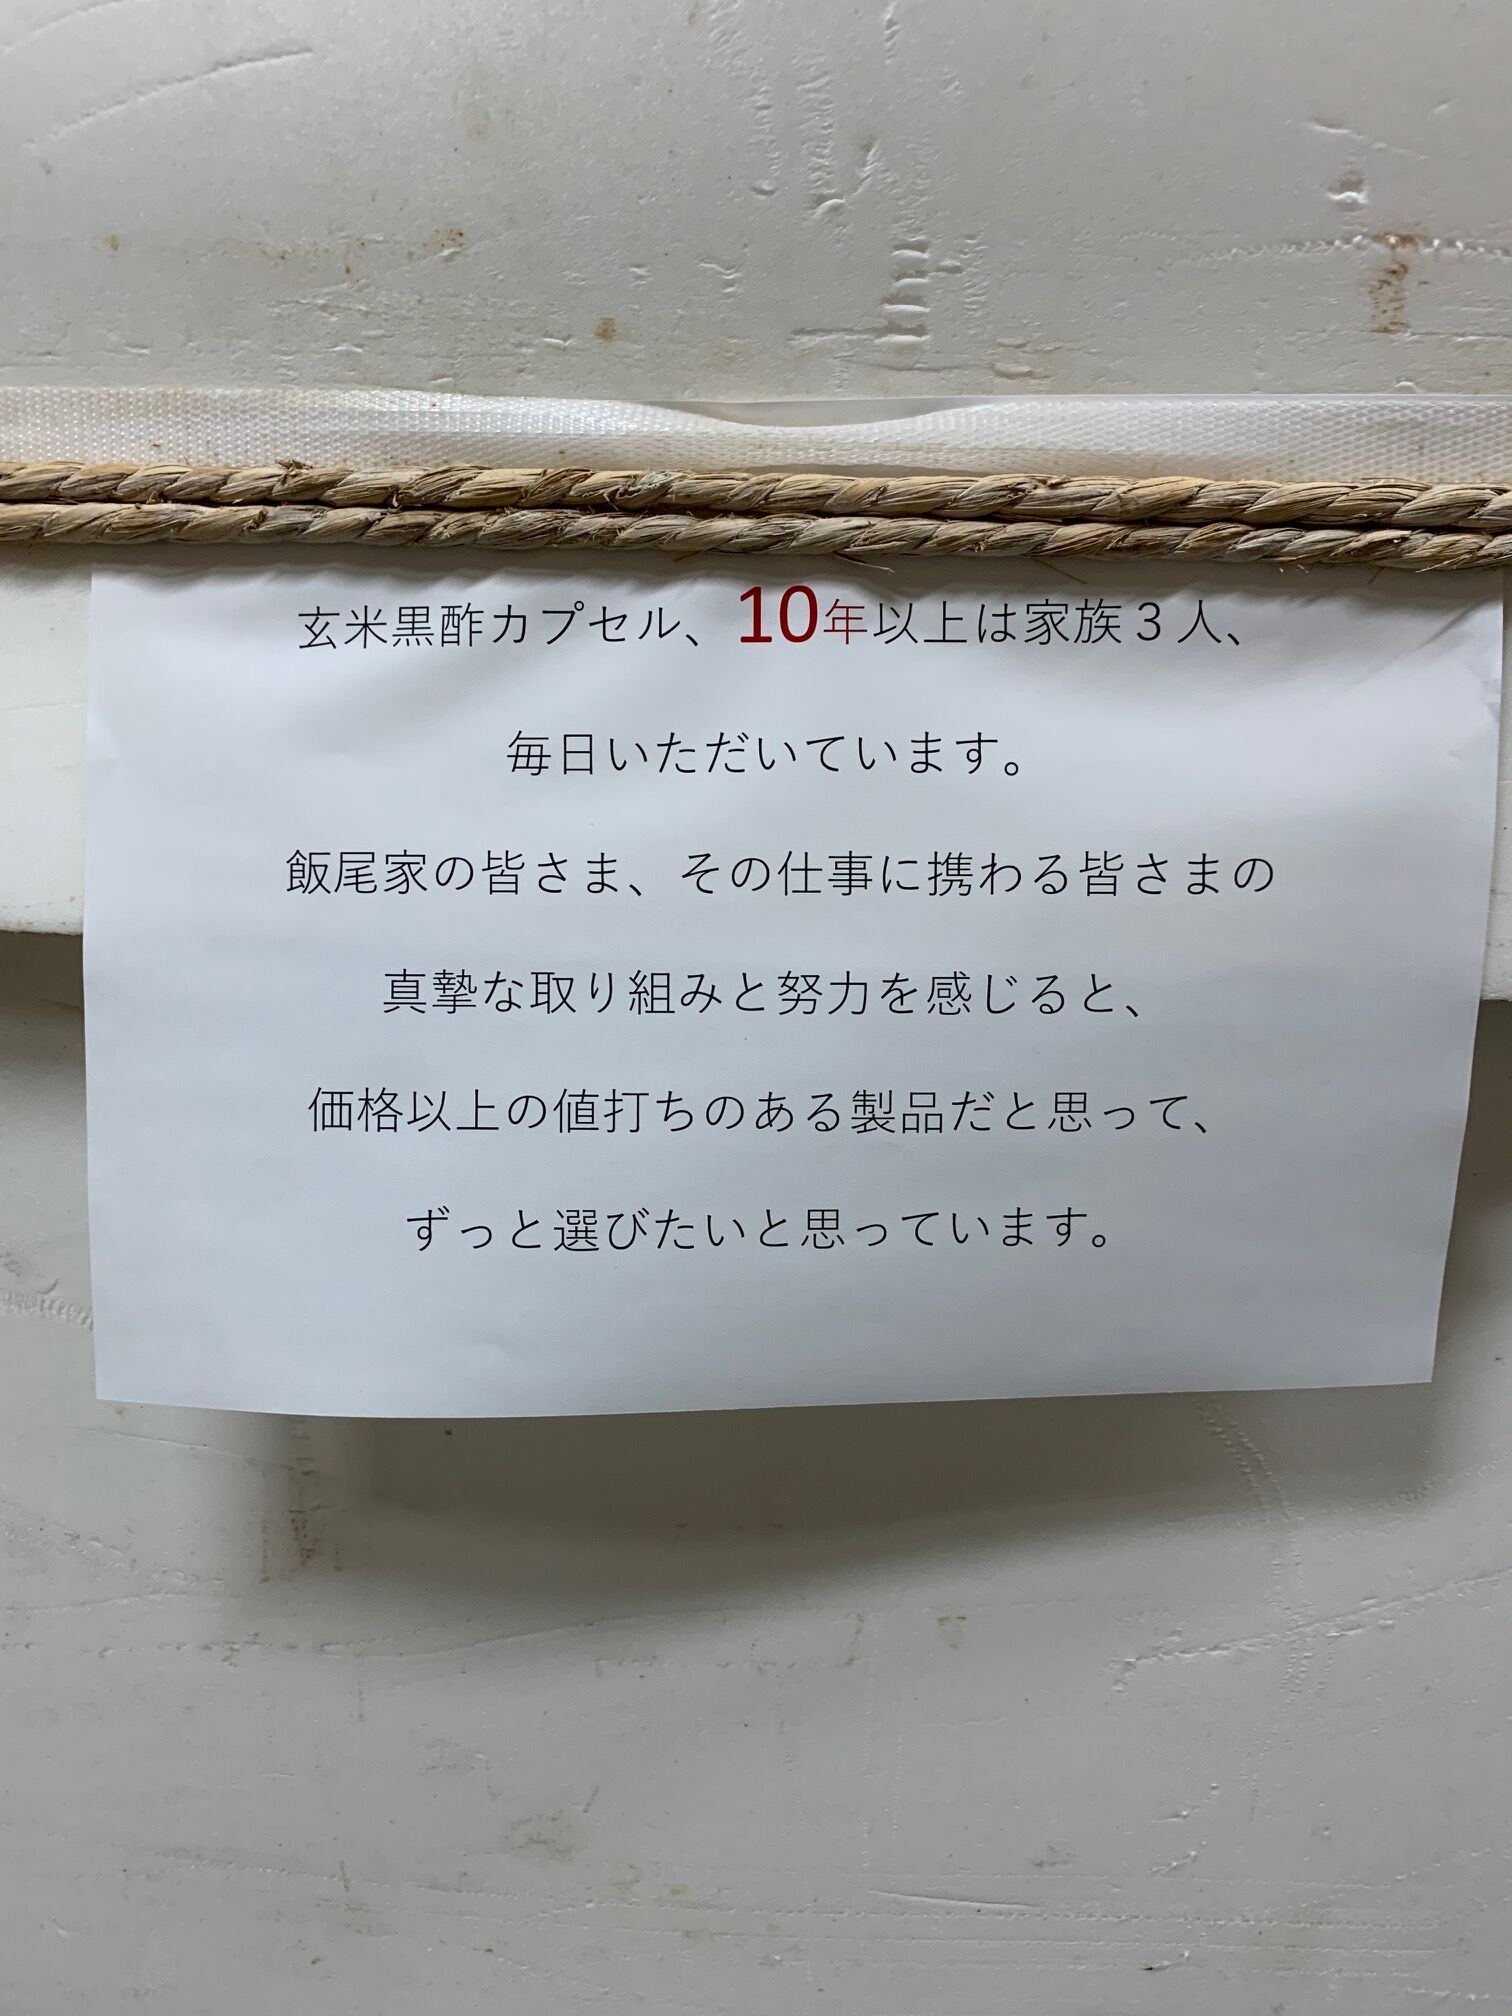 玄米黒酢カプセル、10年以上は家族３人、
毎日いただいています。
飯尾家の皆さま、その仕事に携わる皆さまの
真摯な取り組みと努力を感じると、
価格以上の値打ちのある製品だと思って、
ずっと選びたいと思っています。